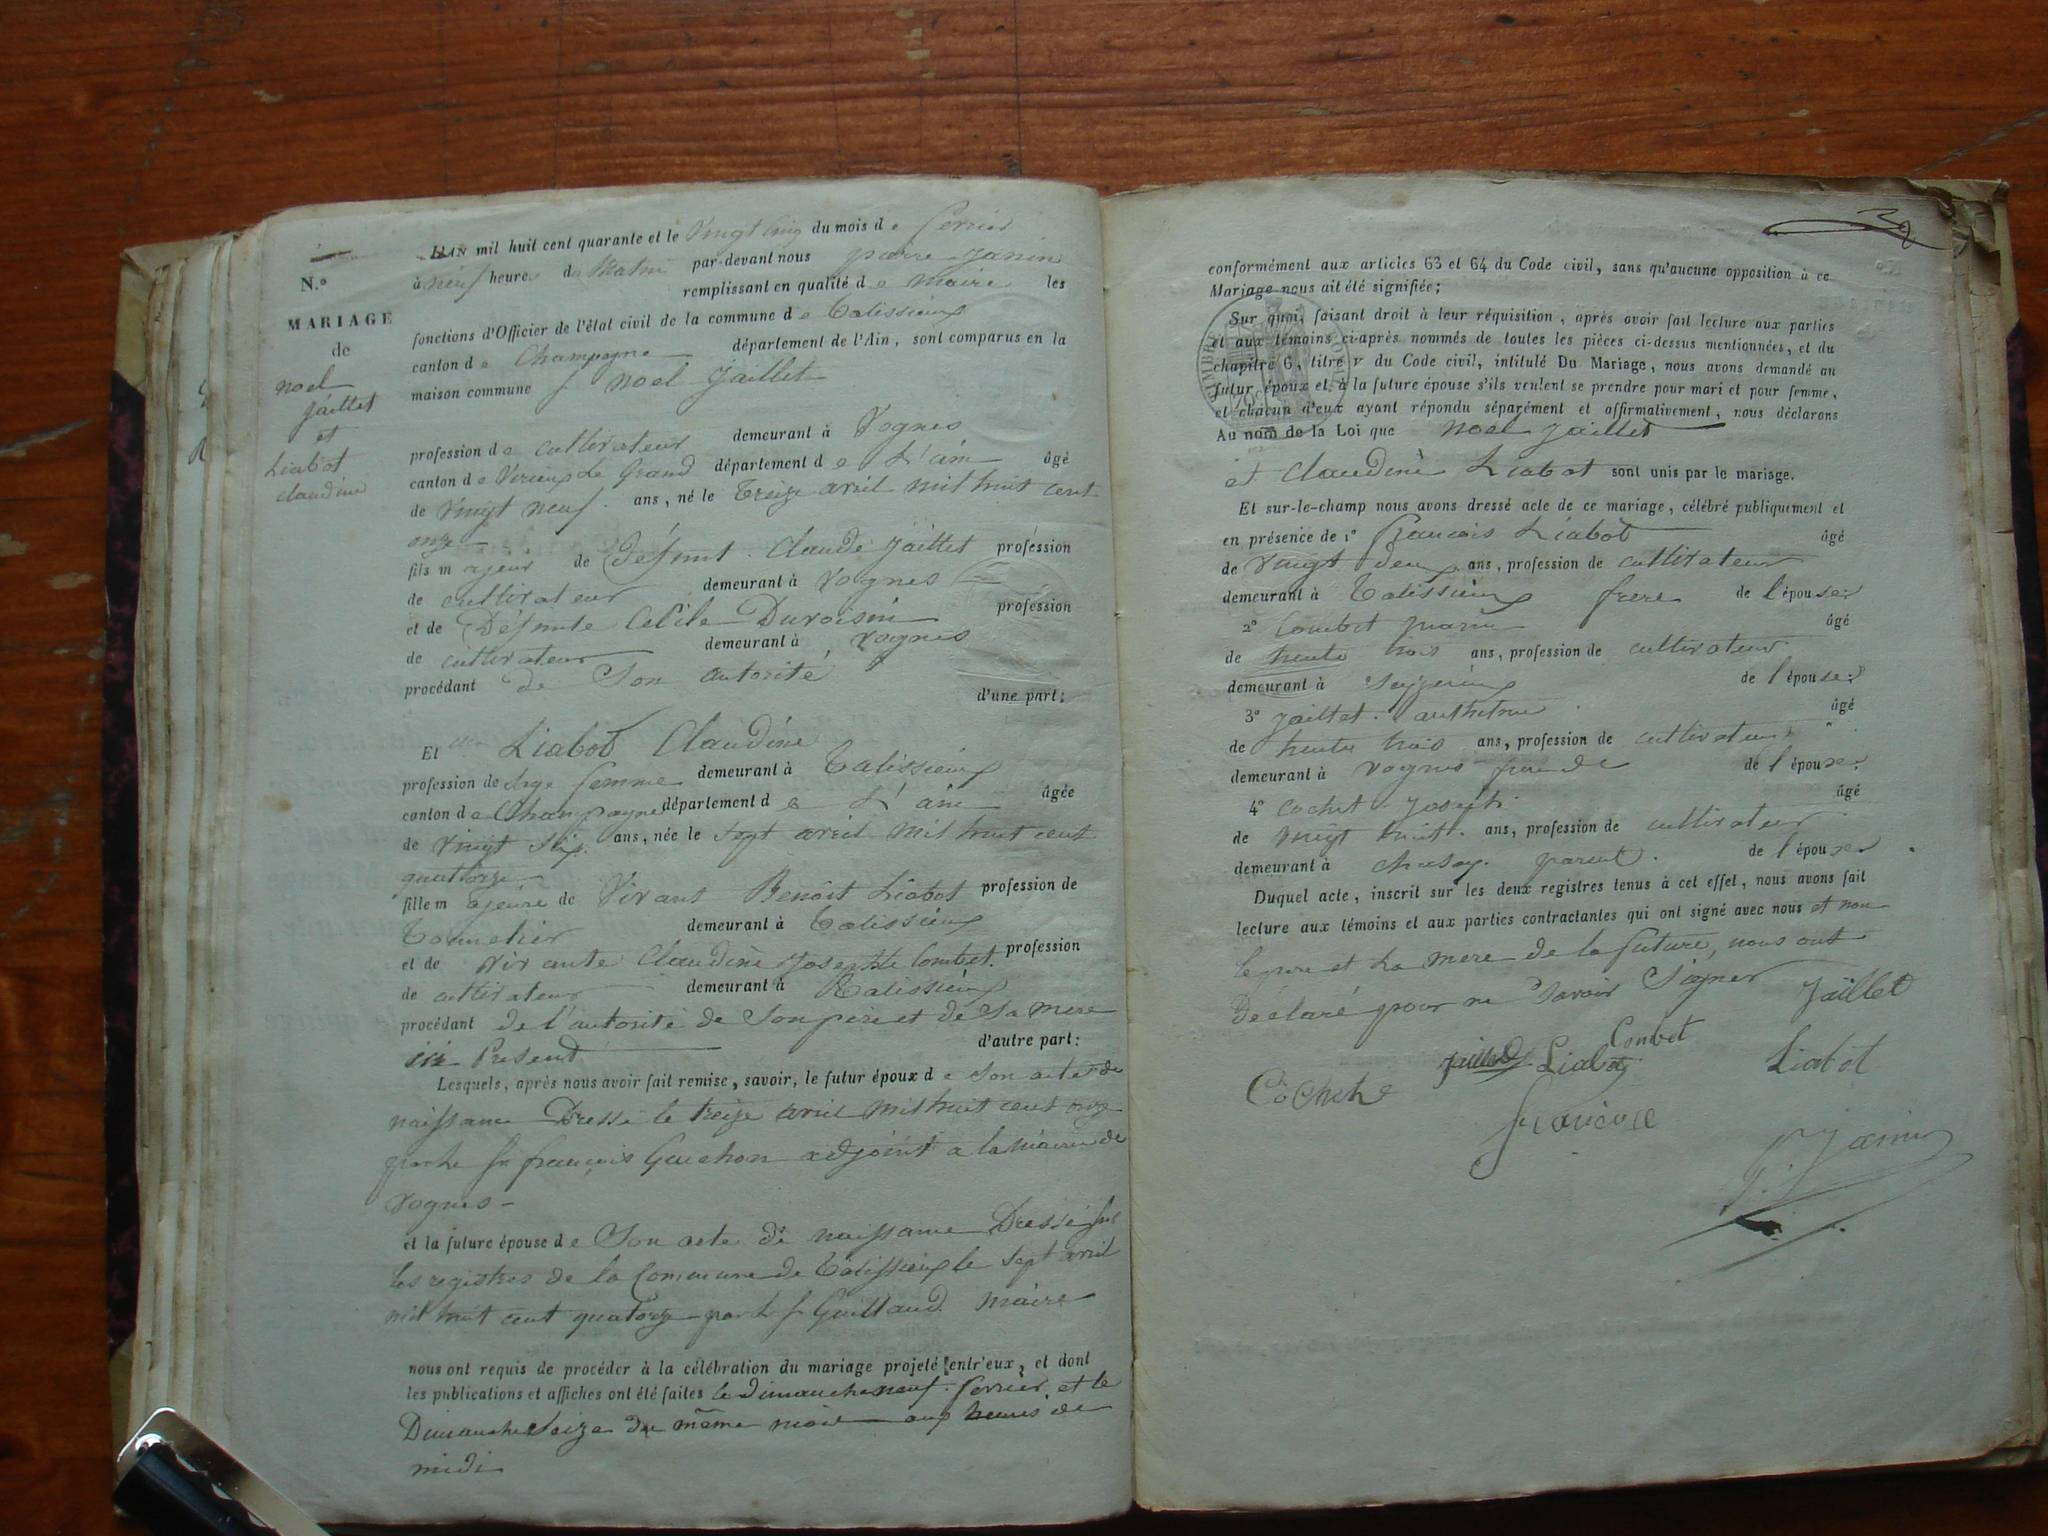 N.º
MARIAGE
de
noel
jaillet
et
Liabot
claudine
L'AN mil huit cent quarante et le vingt cinq du mois de fevrier
à neuf heures du Matin par-devant nous pierre janin
remplissant en qualité de maire les
fonctions d'Officier de l'état civil de la commune de Talissieux
canton de Champagne département de l'Ain, sont comparus en la
maison commune noel jaillet
profession de cultivateur demeurant à Vognes
canton de Virieux Le Grand département de L'ain âgé
de vingt neuf ans, né le treize avril mil huit cent
onze
fils majeur de Défunt Claude jaillet profession
de cultivateur demeurant à vognes
et de Défunte Cécile Duvoisin profession
de cultivateur demeurant à vognes
procédant de Son autorité
d'une part;
Et Liabot Claudine
profession de Sage femme demeurant à Talissieux
canton de Champagne département de L'ain âgée
de vingt six ans, née le sept avril mil huit cent
quattorze
fille majeure de Vivant Benoit Liabot profession de
Tonnelier demeurant à Talissieux
et de vivante Claudine josephte Combet profession
de cultivateur demeurant à Talissieux
procédant de l'autorité de Son pere et de Sa mere
ici Present d'autre part:
Lesquels, après nous avoir fait remise, savoir, le futur époux de son acte de
naissance Dressé le treize avril mil huit cent onze
par le Sr françois Guichon adjoint a la Mairie de
vognes
et la future épouse de Son acte de naissance Dressé sur
les registres de la Commune de Talissieux le sept avril
mil huit cent quatorze par le Sr Guillaud Maire
nous ont requis de procéder à la célébration du mariage projeté entr'eux, et dont
les publications et affiches ont été faites le dimanche neuf fevrier et le
Dimanche Seize du même mois aux heures de
midi
conformément aux articles 63 et 64 du Code civil, sans qu'aucune opposition à ce
Mariage nous ait été signifiée;
Sur quoi, faisant droit à leur réquisition, après avoir fait lecture aux parties
et aux témoins ci-après nommés de toutes les pièces ci-dessus mentionnées, et du
chapitre 6, titre V du Code civil, intitulé Du Mariage, nous avons demandé au
futur époux et à la future épouse s'ils veulent se prendre pour mari et pour femme,
et chacun d'eux ayant répondu séparément et affirmativement, nous déclarons
Au nom de la Loi que noel jaillet
et Claudine Liabot sont unis par le mariage.
Et sur-le-champ nous avons dressé acte de ce mariage, célébré publiquement et
en présence de 1º francois Liabot âgé
de vingt deux ans, profession de cultivateur
demeurant à Talissieux frere de l'épouse;
2º Combet âgé
de trente trois ans, profession de cultivateur
demeurant à de l'épouse;
3º jaillet anthelme âgé
de trente trois ans, profession de cultivateur
demeurant à vognes de l'époux;
4º Cochet joseph âgé
de vingt huit ans, profession de cultivateur
demeurant à parent de l'époux
Duquel acte, inscrit sur les deux registres tenus à cet effet, nous avons fait
lecture aux témoins et aux parties contractantes qui ont signé avec nous et non
le pere et La mere de la future, nous ont
Déclaré pour ne Savoir Signer jaillet
Combet
jaillet Liabot Liabot
Cochet
francois
P. Janin